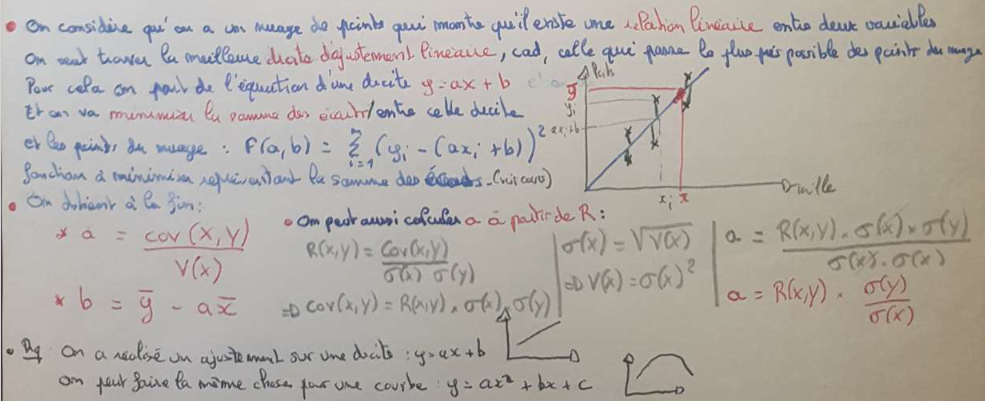 • On considère qu'on a un nuage de points qui montre qu'il existe une relation linéaire entre deux variables
On veut trouver la meilleure droite d'ajustement linéaire, cad, celle qui passe le plus près possible des points du nuage
Pour cela on part de l'équation d'une droite y = ax + b
Et on va minimiser la somme des écarts/entre cette droite
et les points du nuage : F(a,b) = Σ_{i=1}^{n} (y_i - (ax_i + b))²
fonction à minimiser représentant la somme des écarts (mis carré)
Poids
ȳ
y_i
ax_i+b
x_i x̄
Taille
• On obtient à la fin :
* a = cov(X,Y) / V(X)
* b = ȳ - a x̄
• On peut aussi calculer a à partir de R :
R(X,Y) = Cov(X,Y) / σ(X) σ(Y)
=> Cov(X,Y) = R(X,Y) × σ(X) × σ(Y)
σ(X) = √V(X)
=> V(X) = σ(X)²
a = R(X,Y) × σ(X) × σ(Y) / σ(X) × σ(X)
a = R(X,Y) × σ(Y) / σ(X)
• Rq : On a réalisé un ajustement sur une droite : y = ax + b
On peut faire la même chose pour une courbe : y = ax² + bx + c